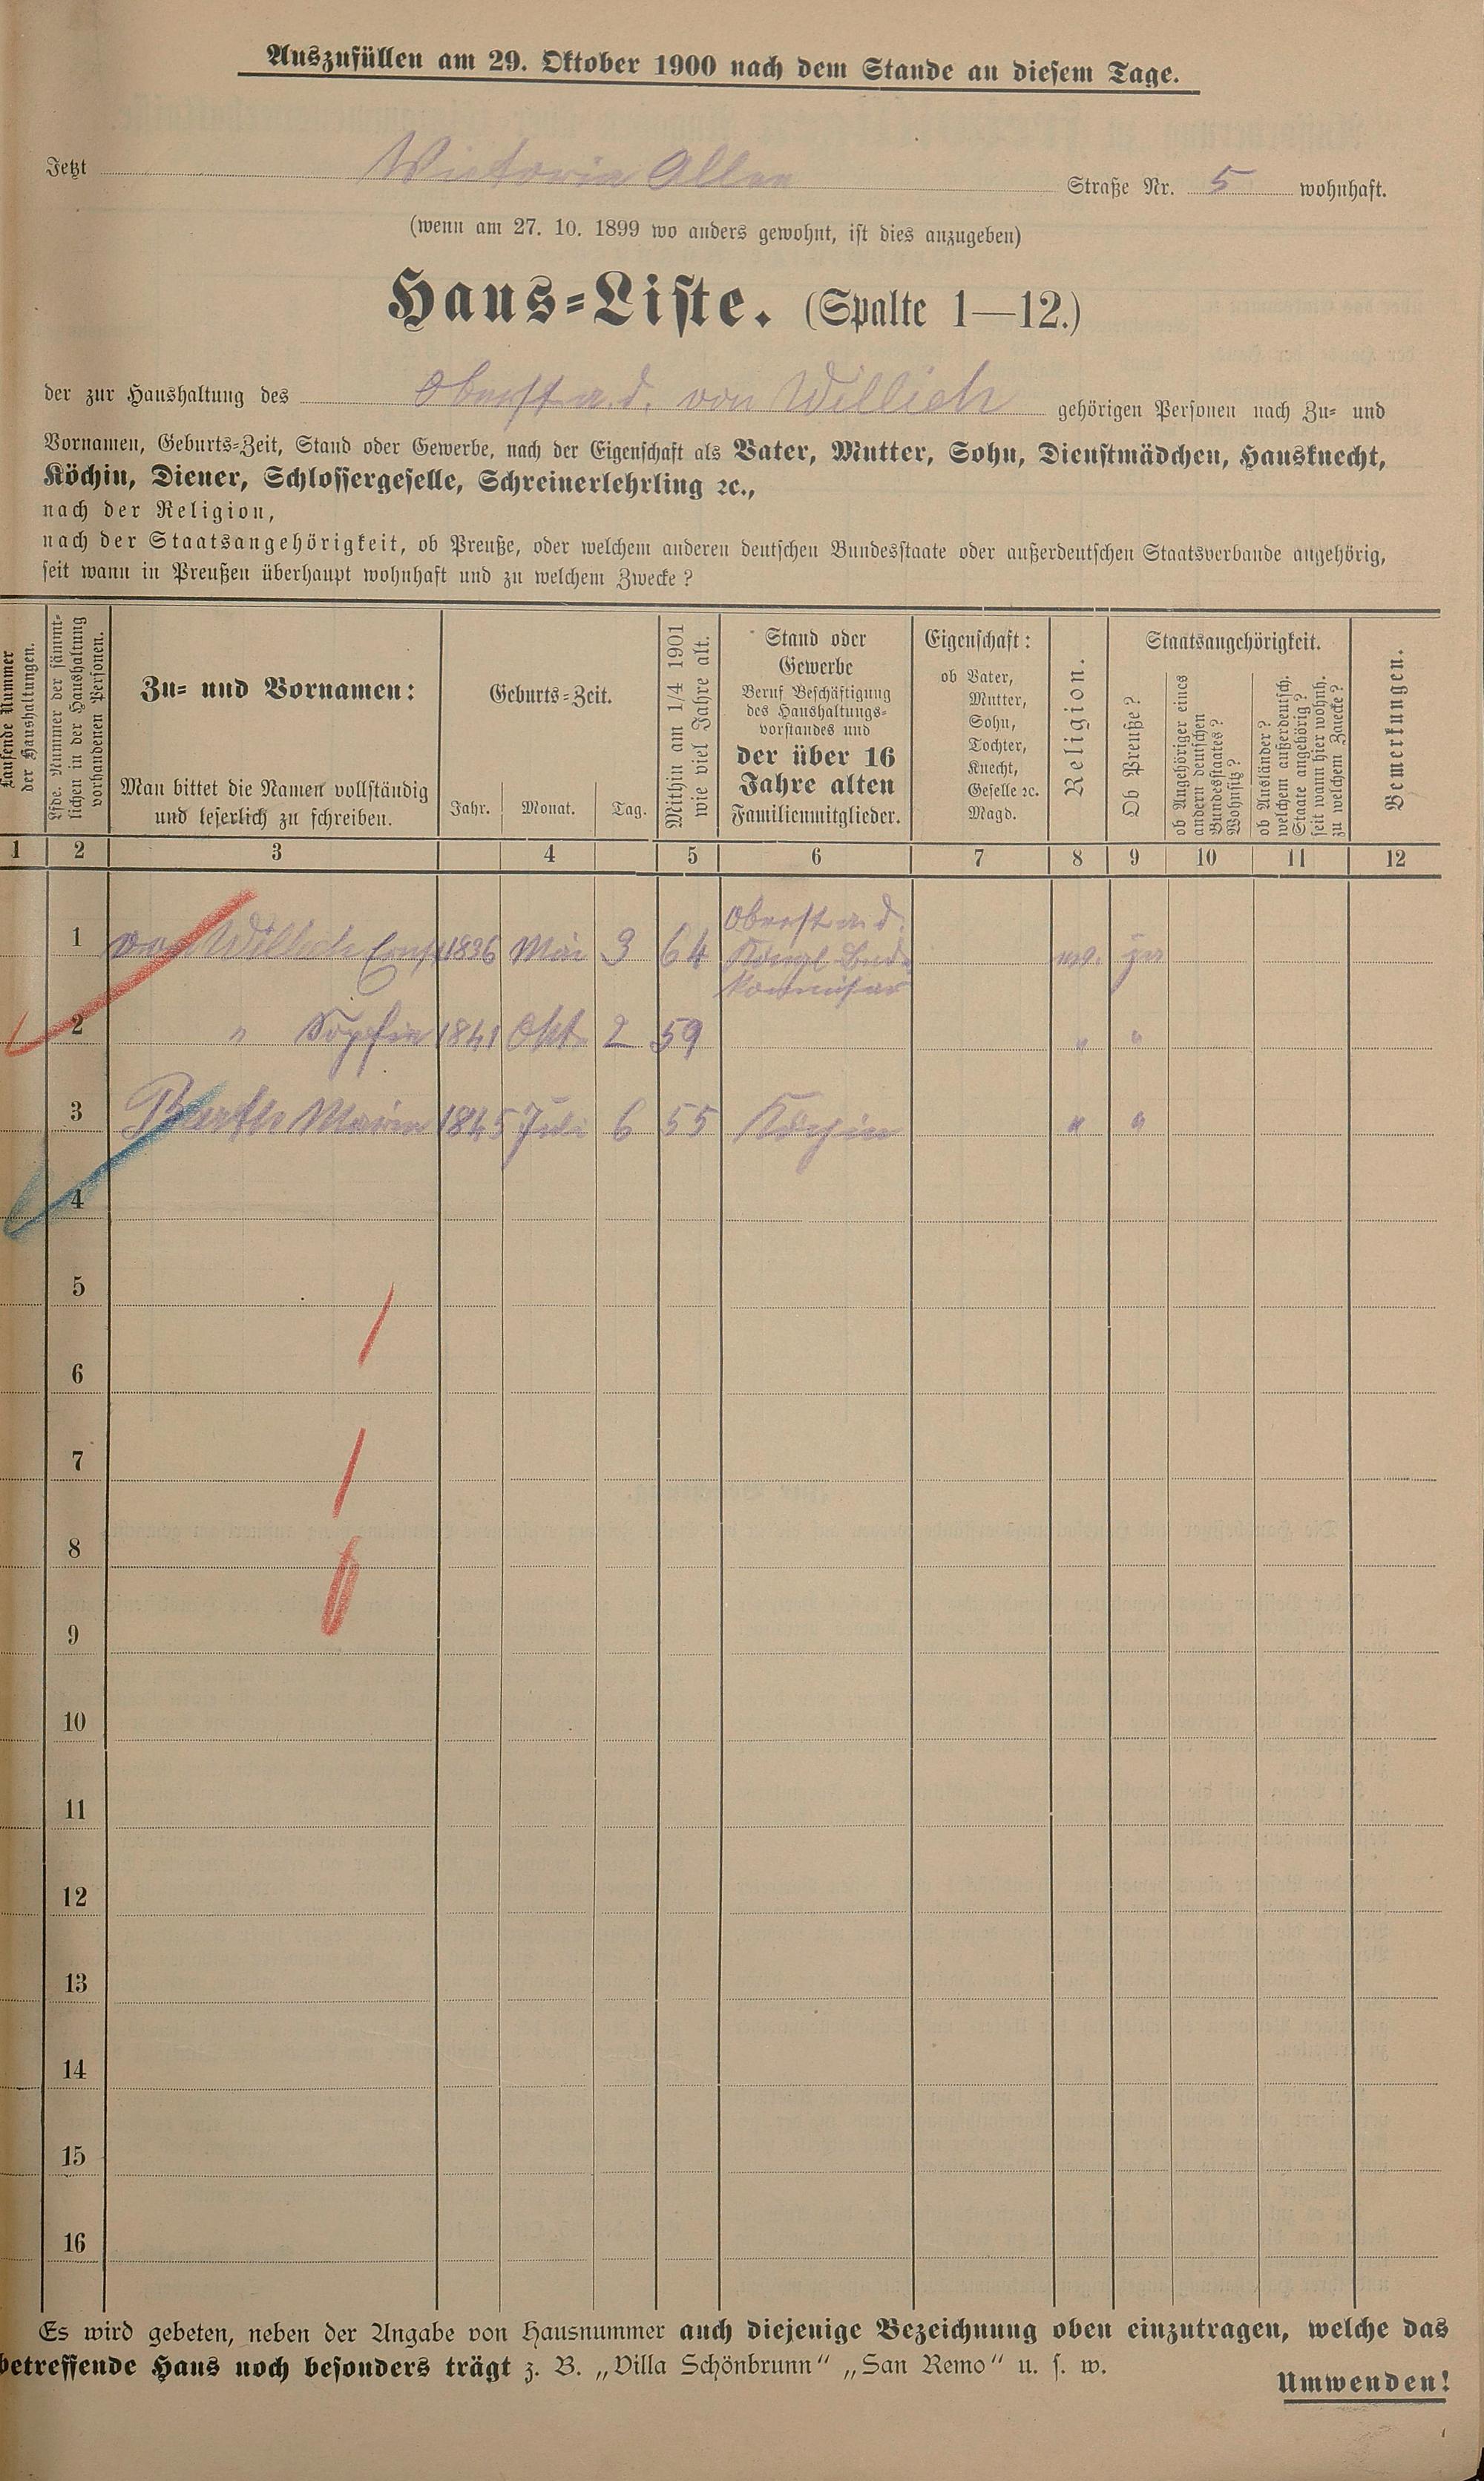 Auszufüllen am 29. Oktober 1900 nach dem Stande an diesem Tage.
Jetzt Victoria Allee Straße Nr. 5 wohnhaft.
(wenn am 27. 10. 1899 wo anders gewohnt, ist dies anzugeben)
Haus-Liste. (Spalte 1—12.)
der zur Haushaltung des Oberst a. d. von Willich gehörigen Personen nach Zu- und
Vornamen, Geburts-Zeit, Stand oder Gewerbe, nach der Eigenschaft als Vater, Mutter, Sohn, Dienstmädchen, Hausknecht,
Köchin, Diener, Schlossergeselle, Schreinerlehrling ꝛc.,
nach der Religion,
nach der Staatsangehörigkeit, ob Preuße, oder welchem anderen deutschen Bundesstaate oder außerdeutschen Staatsverbande angehörig,
seit wann in Preußen überhaupt wohnhaft und zu welchem Zwecke?
Laufende Nummer
der Haushaltungen.
Lfde. Nummer der sämmt-
lichen in der Haushaltung
vorhandenen Personen.
Zu- und Vornamen:
Man bittet die Namen vollständig
und leserlich zu schreiben.
Geburts-Zeit.
Jahr. Monat. Tag.
Mithin am 1/4 1901
wie viel Jahre alt.
Stand oder
Gewerbe
Beruf Beschäftigung
des Haushaltungs-
vorstandes und
der über 16
Jahre alten
Familienmitglieder.
Eigenschaft:
ob Vater,
Mutter,
Sohn,
Tochter,
Knecht,
Geselle ꝛc.
Magd.
Religion.
Staatsangehörigkeit.
Ob Preuße?
ob Angehöriger eines
andern deutschen
Bundesstaates?
Wohnsitz?
ob Ausländer?
welchem außerdeutsch.
Staate angehörig?
seit wann hier wohnh.
zu welchem Zwecke?
Bemerkungen.
1 2 3 4 5 6 7 8 9 10 11 12
1 von Willich Ernst 1836 Mai 3 64 Oberst a. d. ev. ja
Königl.
2 " Sophie 1841 Okt. 2 59 " "
3 Marie 1845 Juli 6 55 Köchin " "
4
5
6
7
8
9
10
11
12
13
14
15
16
Es wird gebeten, neben der Angabe von Hausnummer auch diejenige Bezeichnung oben einzutragen, welche das
betreffende Haus noch besonders trägt z. B. „Villa Schönbrunn“ „San Remo“ u. s. w.
Umwenden!